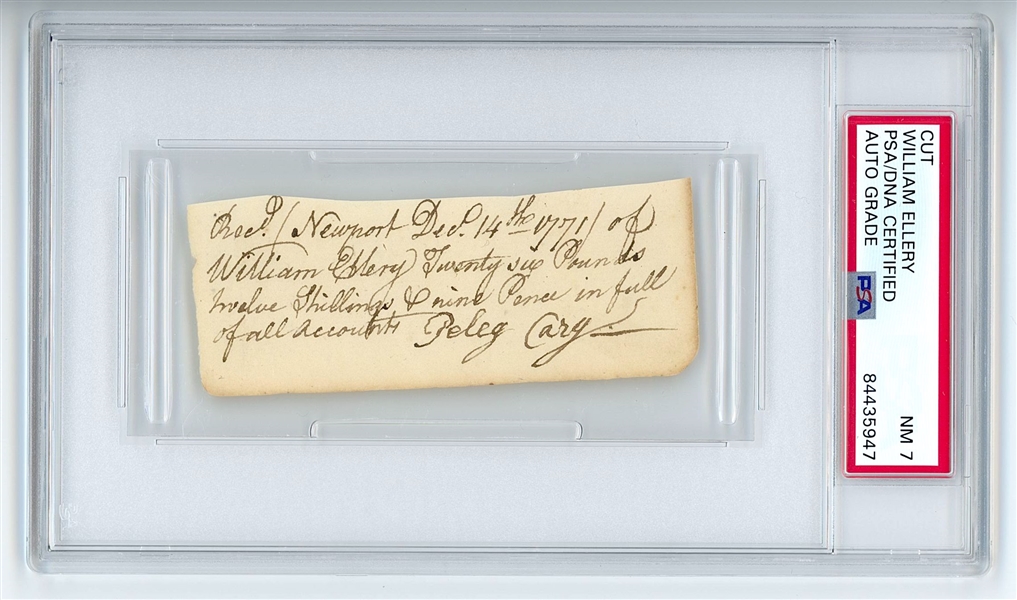 Recd. / Newport Decr. 14th 1771 / of
William Ellery Twenty six Pounds
twelve Shillings & nine Pence in full
of all Accounts Peleg Cary
CUT
WILLIAM ELLERY
PSA/DNA CERTIFIED
AUTO GRADE
PSA
NM 7
84435947